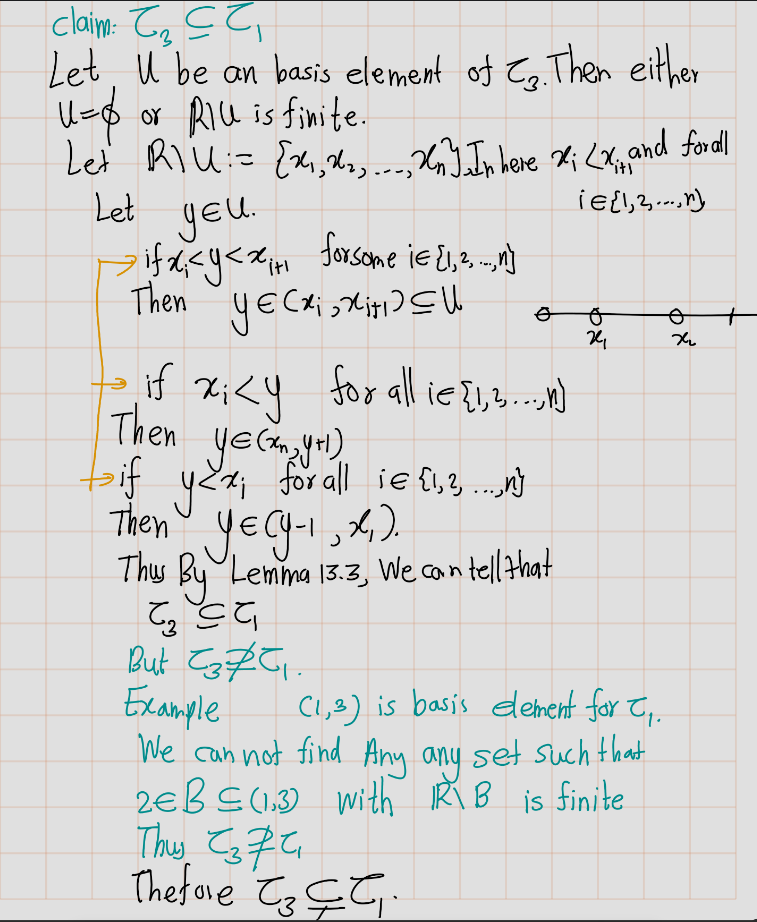 claim: τ₃ ⊆ τ₁
Let U be an basis element of τ₃. Then either
U=ϕ or ℝ\U is finite.
Let ℝ\U := {x₁, x₂, ..., xₙ}. In here xᵢ < xᵢ₊₁ and for all
i ∈ {1, 2, ..., n}
Let y∈U.
if xᵢ < y < xᵢ₊₁ for some i ∈ {1, 2, ..., n}
Then y ∈ (xᵢ, xᵢ₊₁) ⊆ U
x₁ x₂
if xᵢ < y for all i ∈ {1, 2, ..., n}
Then y ∈ (xₙ, y+1)
if y < xᵢ for all i ∈ {1, 2, ..., n}
Then y ∈ (y-1, x₁).
Thus By Lemma 13.3, We can tell that
τ₃ ⊆ τ₁
But τ₃ ⊉ τ₁.
Example (1,3) is basis element for τ₁.
We can not find Any any set such that
2 ∈ B ⊆ (1,3) with ℝ\B is finite
Thus τ₃ ⊉ τ₁
Thefore τ₃ ⊊ τ₁.